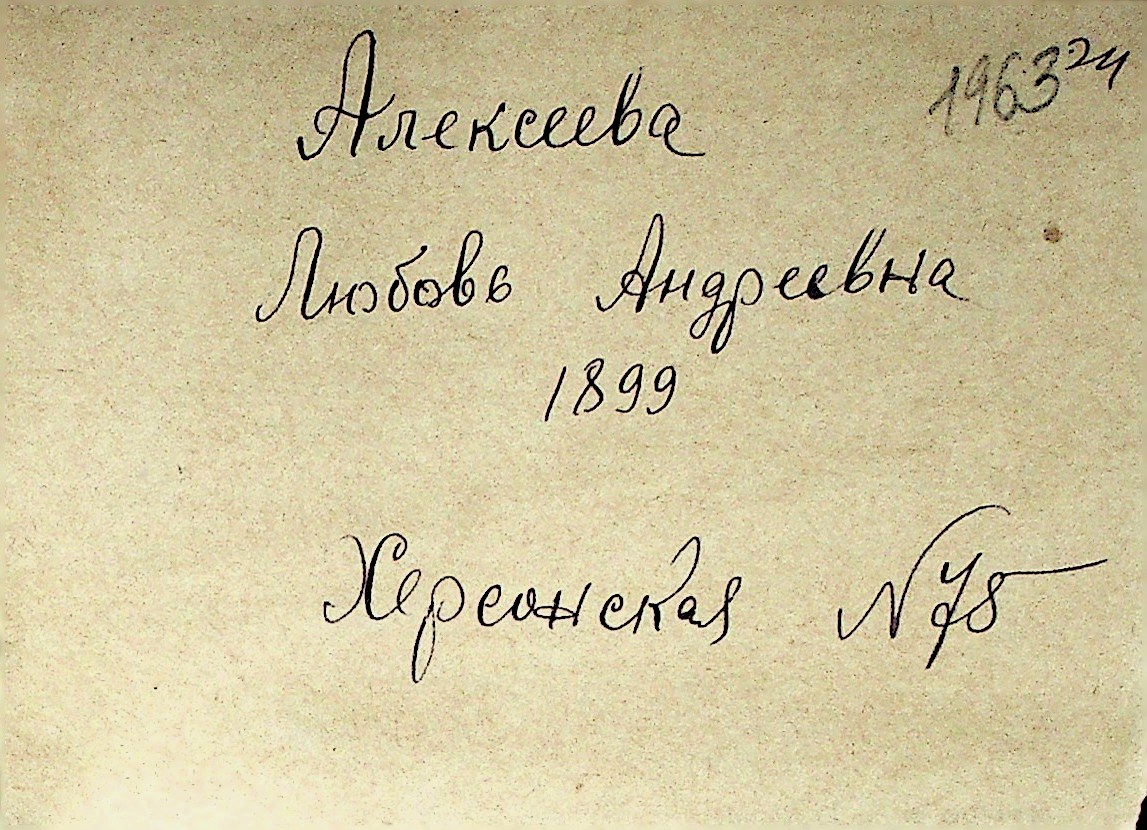 1963 24
Алексеева
Любовь Андреевна
1899
Херсонская N 78